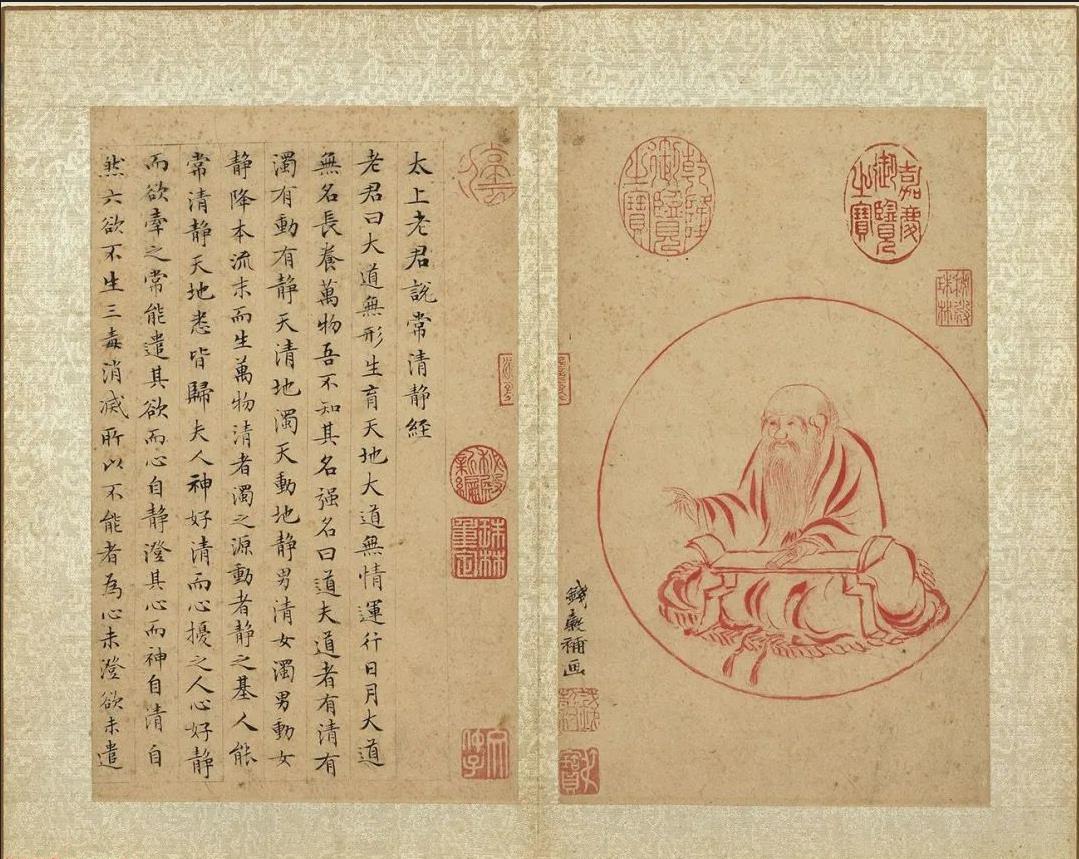 嘉慶御覽之寶
乾隆御覽之寶
秘殿珠林
錢穀補画
秘殿新編
珠林重定
太上老君說常清静經
老君曰大道無形生育天地大道無情運行日月大道
無名長養萬物吾不知其名强名曰道夫道者有清有
濁有動有静天清地濁天動地静男清女濁男動女
静降本流末而生萬物清者濁之源動者静之基人能
常清静天地悉皆歸夫人神好清而心擾之人心好静
而欲牽之常能遣其欲而心自静澄其心而神自清自
然六欲不生三毒消滅所以不能者為心未澄欲未遣